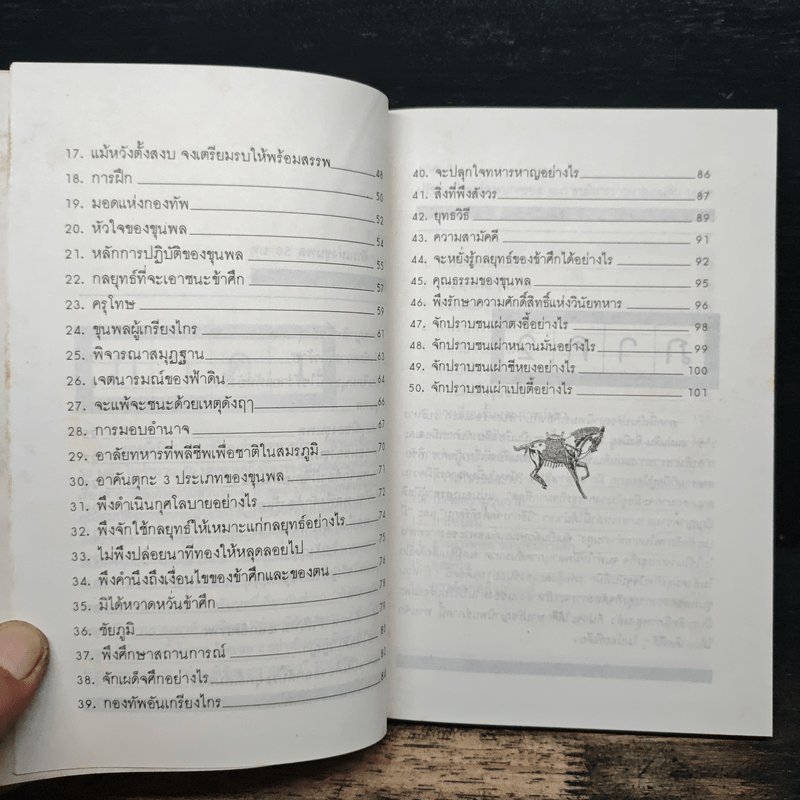 17. แม้หวังตั้งสงบ จงเตรียมรบให้พร้อมสรรพ 48
18. การฝึก 50
19. มอดแห่งกองทัพ 52
20. หัวใจของขุนพล 54
21. หลักการปฏิบัติของขุนพล 55
22. กลยุทธ์ที่จะเอาชนะข้าศึก 57
23. ครุโทษ 59
24. ขุนพลผู้เกรียงไกร 61
25. พิจารณาสมุฏฐาน 63
26. เจตนารมณ์ของฟ้าดิน 64
27. จะแพ้จะชนะด้วยเหตุดังฤๅ 66
28. การมอบอำนาจ 67
29. อาลัยทหารที่พลีชีพเพื่อชาติในสมรภูมิ 70
30. อาคันตุกะ 3 ประเภทของขุนพล 71
31. พึงดำเนินกุศโลบายอย่างไร 72
32. พึงจักใช้กลยุทธ์ให้เหมาะแก่กลยุทธ์อย่างไร 74
33. ไม่พึงปล่อยนาทีทองให้หลุดลอยไป 75
34. พึงคำนึงถึงเงื่อนไขของข้าศึกและของตน 76
35. มิได้หวาดหวั่นข้าศึก 78
36. ชัยภูมิ 79
37. พึงศึกษาสถานการณ์ 81
38. จักเผด็จศึกอย่างไร 82
39. กองทัพอันเกรียงไกร 84
40. จะปลุกใจทหารหาญอย่างไร 86
41. สิ่งที่พึงสังวร 87
42. ยุทธวิธี 89
43. ความสามัคคี 91
44. จะหยั่งรู้กลยุทธ์ของข้าศึกได้อย่างไร 92
45. คุณธรรมของขุนพล 95
46. พึงรักษาความศักดิ์สิทธิ์แห่งวินัยทหาร 96
47. จักปราบชนเผ่าตงอี้อย่างไร 98
48. จักปราบชนเผ่าหนานมั่นอย่างไร 99
49. จักปราบชนเผ่าซีหยงอย่างไร 100
50. จักปราบชนเผ่าเปยตี้อย่างไร 101